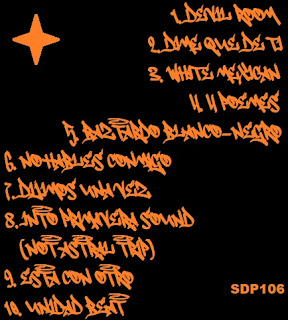 1. DEVIL ROOM
2. DIME QUE DE TI
3. WHITE MEXICAN
4. 4 POEMES
5. BUZ TARDO BLANCO-NEGRO
6. NO HABLES CONMIGO
7. DIJIMOS UNA VEZ
8. INTO PRIMAVERA SOUND
(NOT ASTRAL TRIP)
9. ESTA CON OTRO
10. UNIDAD BEAT
SDP106